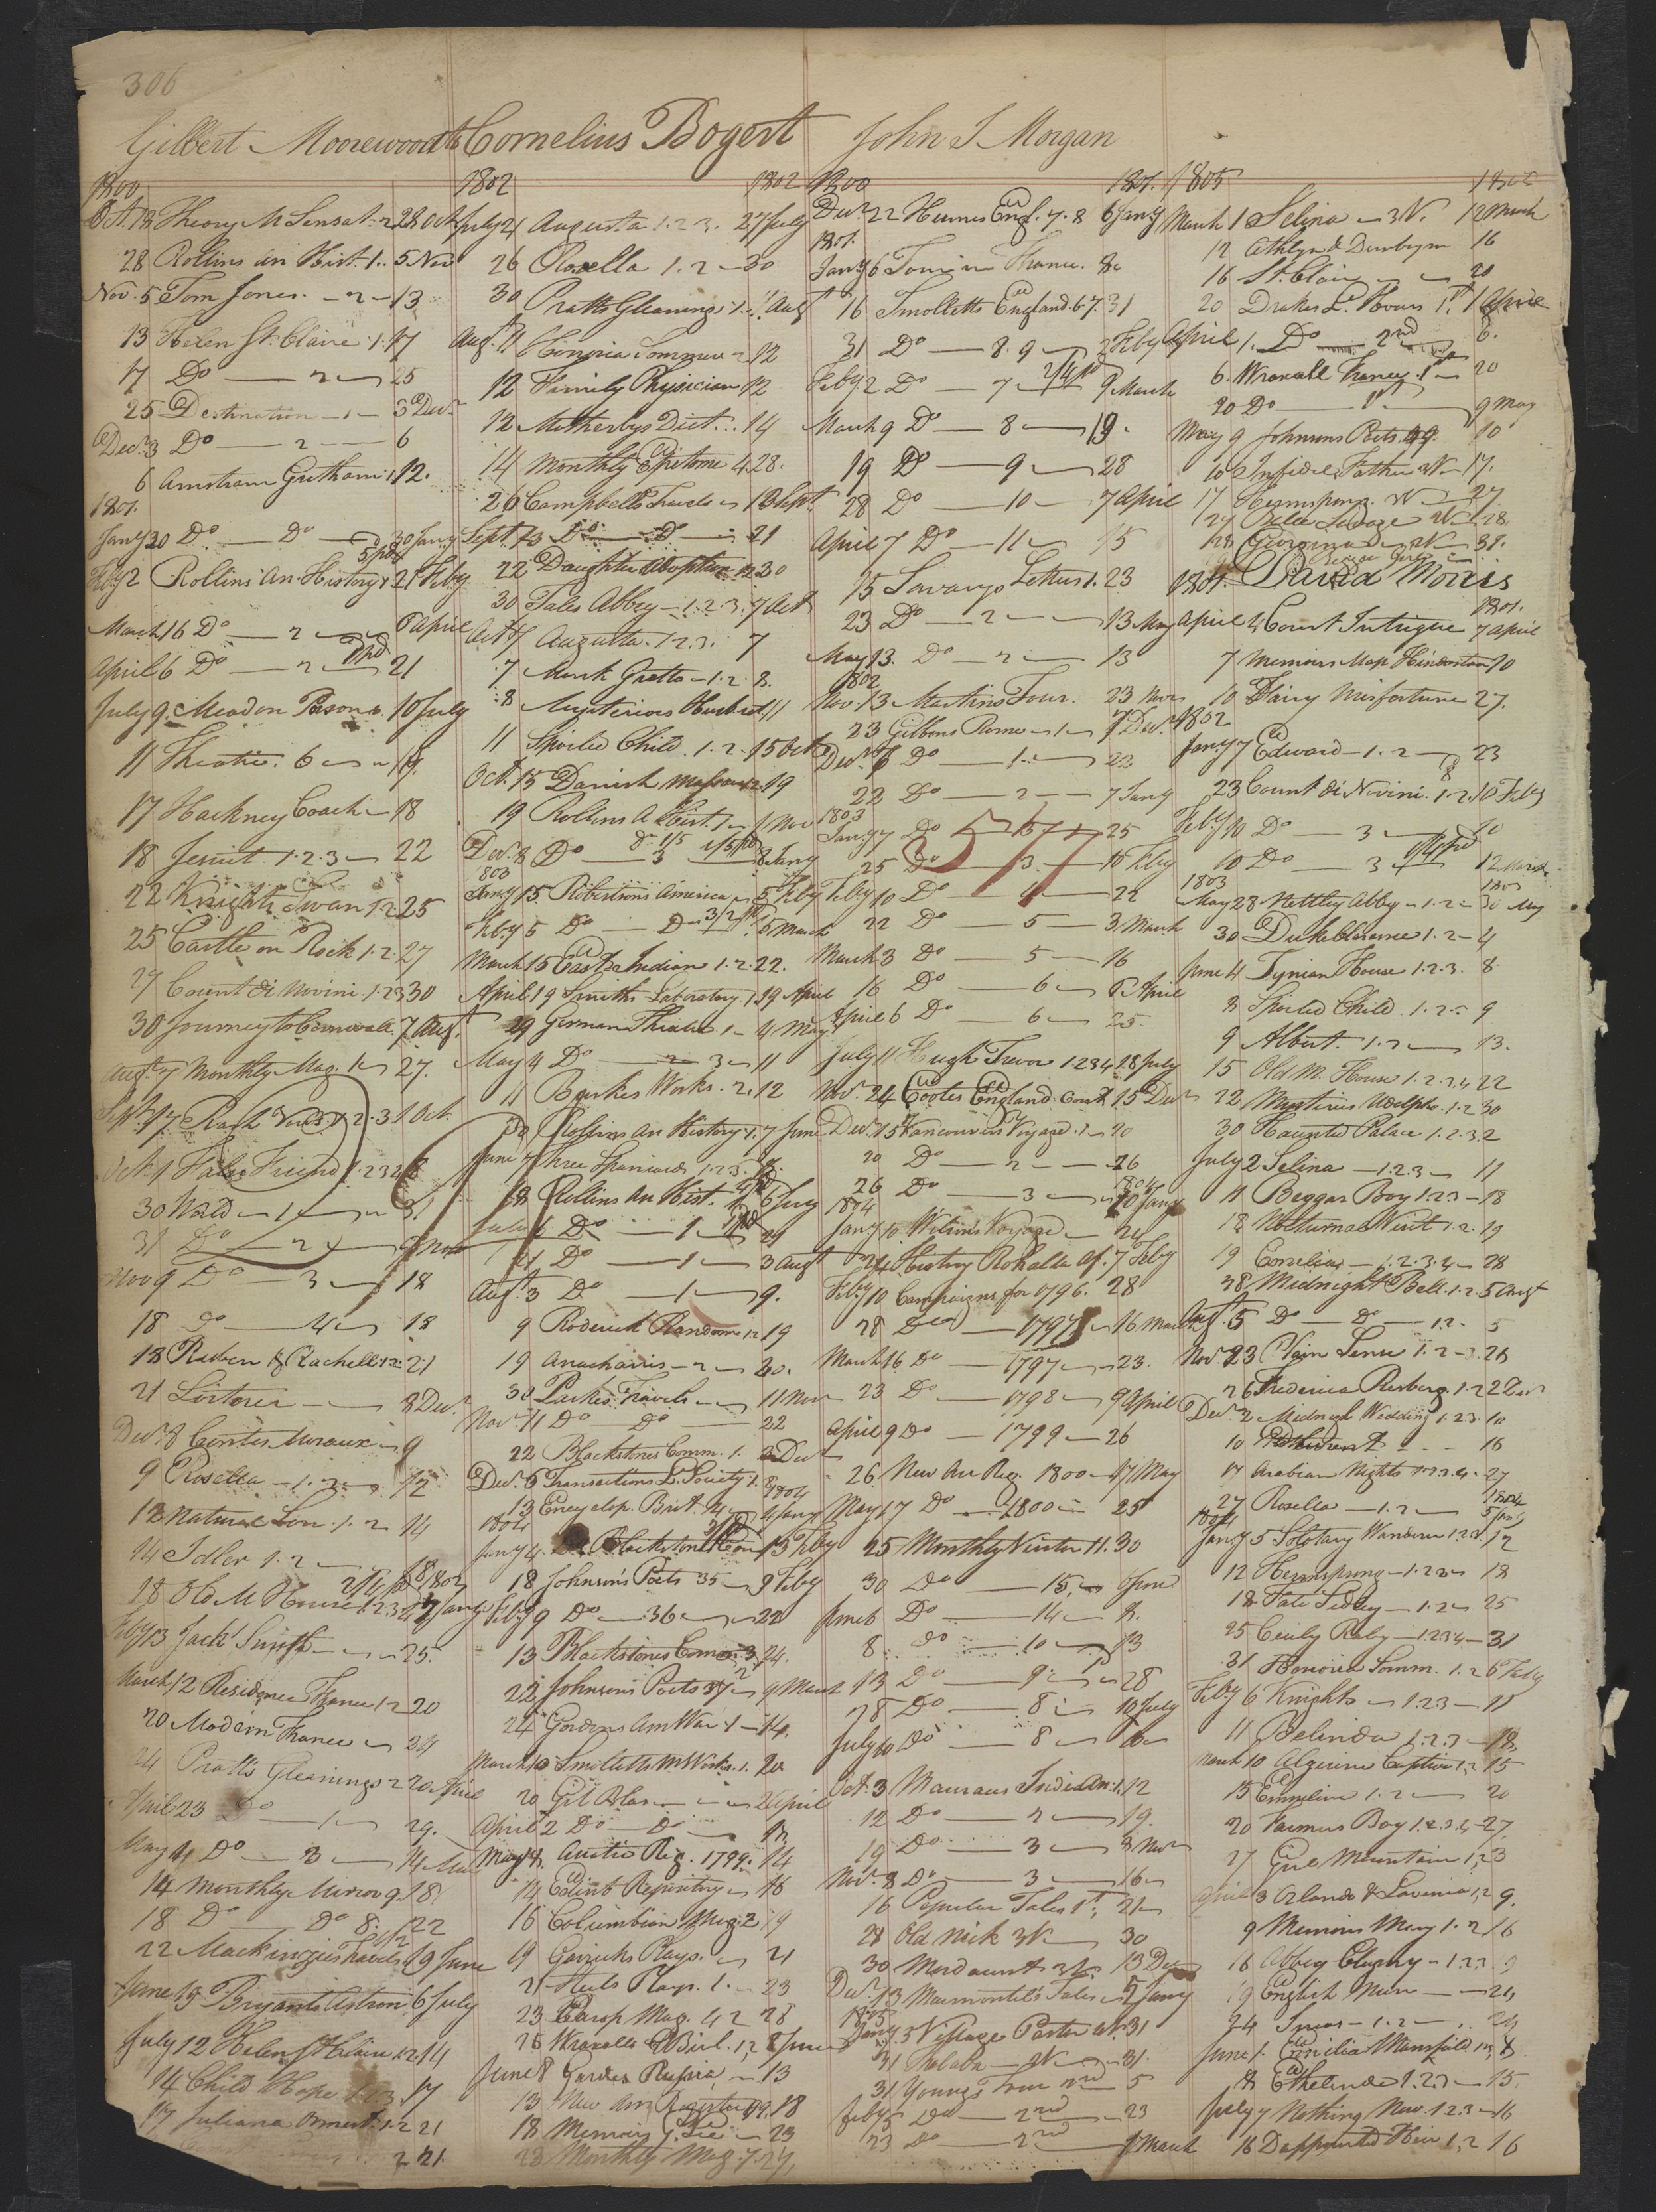 306
Gilbert Moorewood
1800
Oct. 18 Theory M Sensat. 2 28 Oct
28 Rollins An Hist. 1. 5 Nov
Nov. 5 Tom Jones 2 13
13 Helen St. Claire 1. 17
17 Do 2 25
25 Destination 1 3 Decr
Decr 3 Do 2 6
6 Amstram Gratham 1. 12.
1801.
Jany 20 Do Do 30 Jany
Feby 2 Rollins An. History 1 21 Feby
March 16 Do 2 6 April
April 6 Do 2 21
July 9 Meadon Poisons 10 July
11 Theatre 6
17 Hackney Coach 18
18 Jesuit 1.2.3 22
22 Knights Swan 1.2 25
25 Castle on Rock 1.2 27
27 Count di Novini 1.2.3 30
30 Journey to Cornwall 7 Augt
Augt 7 Monthly Mag. 27.
Sept. 17 Rash Vows 1.2.3 1 Oct.
Oct. 1 False Friend 1.2.3
30 World 1 31
31 Do 2 9 Nov
Nov 9 Do 3 18
18 Do 4 18
18 Reuben & Rachell 1.2 21
21 8 Decr
Decr 8 Contes Moraux 9
9 Rosella 1.2 12
12 Natural Son 1.2 14
14 Idler 1.2 18
18 Old M House 1.2.3.4 7 Jany
Feby 13 Jack Smith 25.
March 12 Residence France 1.2 20
20 Modern France 24
24 Pratts Gleanings 2 20 April
April 23 Do 1 29.
May 4 Do 3 14
14 Monthly Mirror 9 18
18 Do Do 8. 22
22 Mackinzies Travels 19 June
June 19 Bryants Astron. 6 July
July 12 Helen St Claire 1.2 14
14 Child Hope 1.2.3 17
17 Juliana Ormest. 1.2 21
2 21.
Cornelius Bogert
1802 1802
July 21 Augusta 1.2.3. 27 July
26 Rosella 1.2 30
30 Pratts Gleanings 1. 11 Augt
Aug. 11 Honoria Sommer 12
12 Family Physician 12
12 Motherbys Dict. 14
14 Monthly Epitome 4. 28.
26 Campbells Travels 13 Sept
Sept. 13 Do Do 21
22 Daughter Adoption 1.2 30
30 Tales Abbey 1.2.3. 7 Oct
Oct 7 Augusta 1.2.3. 7
7 Monk Grotto 1.2. 8.
8 Mysterious Husband 11
11 Spoiled Child 1.2. 15 Oct
Oct. 15 Danish Massacre 19
19 Rollins A Hist. 1 1 Nov
Decr 8 Do 3 8 Jany
1803
Jany 15. Robertsons America 5 Feby
Feby 5 Do Do 3/2 pd 15 March
March 15 East Indian 1.2. 22.
April 19 Smiths Laboratory 1. 19 April
29 German Theatre 1 4 May
May 4 Do 3 11
11 Burkes Works. 2. 12
Rollins An History 1. 7 June
June 7 Three Spaniards 1.2.3.
18 Rollins An Hist. 1 6 July
July 6 Do 1 21
21 Do 1 3 Augt
Augt 3 Do 1 9.
9 Roderick Randome 1.2 19
19 Anacharsis 2 30.
30 Parkes Travels 11 Nov
Nov. 11 Do Do 22
22 Blackstones Comm. 1. 3 Decr
Decr 6 Transactions L. Society 1.
13 Encyclop. Brit. 4 Jany
1804
Jany 4. Do Blackstones Com 13 Feby
18 Johnsons Poets 35 9 Feby
Feby 9 Do 36 22
13 Blackstones Comm. 3. 24.
22 Johnsons Poets 37 9 March
24 Gordons Am War 1 14.
March 10 Smolletts M Works. 1. 20
20 Gil Blas 2 April
April 2 Do Do
May 14. Asiatic Reg. 1799. 14
14 Edinb Repository 16
16 Columbian Mag. 2 19
19 Garricks Plays. 21
21 Steels Plays. 1. 23
23 Europ Mag. 42 28
28 Wraxalls C Birl. 1,2 8 June
June 8 Guides Russia 13
13 New Ann Register 99. 18
18 Memoirs G. Lee 23
23 Monthly Mag. 7. 27.
John S Morgan
1800 1801.
Decr 22 Humes Engl. 7. 8 6 Jany
1801.
Jany 6 Tour in France. 8.
16 Smolletts England 6.7. 31
31 Do 8.9 2 Feby
Feby 2 Do 7 2/4 pd 9 March
March 9 Do 8 19.
19 Do 9 28
28 Do 10 7 April
April 7 Do 11 15
15 Savarys Letters 1. 23
23 Do 2 13 May
May 13. Do 2 13
1802
Nov. 13 Martins Tour. 23 Nov
23 Gibbons Rome 1 7 Decr
Decr 7 Do 1. 22
22 Do 2 7 Jany
1803
Jany 7 Do 25
25 Do 3. 10 Feby
Feby 10 Do 4 22
22 Do 5 3 March
March 3 Do 5 16
16 Do 6 6 April
April 6 Do 6 25.
July 11 Hugh Trevor 1.2.3.4 18 July
Nov. 24 Cootes England Cont. 15 Decr
Decr 15 Vancouvers Voyage 1 20
20 Do 2 26
26 Do 3 10 Jany
1804
Jany 10 Wilsons Voyage 24
24 History Rohalla Af. 7 Feby
Feby 10 Campaigns for 1796. 28
28 Do 1797 16 March
March 16 Do 1797 23.
23 Do 1798 9 April
April 9 Do 1799 26
26 New An Reg. 1800 17 May
May 17 Do 1800 25
25 Monthly Visitor 11. 30
30 Do 15, June
June 6 Do 14 8.
8 Do 10 13
13 Do 9 28
28 Do 8 10 July
July 10 Do 8
Oct. 3 Mauraus Indian An. 1. 12
12 Do 2 19.
19 Do 3 3 Nov
Nov. 3 Do 3 16
16 Popular Tales 1st, 21
28 Old Nick 3V. 30
30 Mordaunt 3V. 13 Decr
Decr 13 Marmontels Tales 2 Jany
1805
Jany 3 Village Pastor 31
31 Thalaba 2V. 31.
31 Youngs Tour 2nd 5
Feby 5 Do 2nd 23
23 Do 2nd 1 March
1805
March 1 Selina 3V. 12 March
12 Athlyn & Dunbayne 16
16 St. Clair 20
20 Drakes L. Hours 1st, 1 April
April 1. Do 2nd 6.
6. Wraxall France 1st 20
20 Do 1st 9 May
May 9 Johnsons Poets 49. 10
10 Infidel Father 3V. 17.
17 Hermsprong. 2V. 27
27 Belle Sauvage 2V. 28.
28 Georgina 2V. 31.
David Morris
1801. 1801.
April 4 Count Intrigue 7 April
7 Memoirs Map Hindostan 10
10 Fairy Misfortune 27.
1802
Jany 7 Edward 1.2 23
23 Count di Novini. 1.2. 10 Feby
Feby 10 Do 3 10
10 Do 3 12 March
1803
May 28 Nettley Abby 1.2 30 May
30 Duke Clarence 1.2 4
June 4 Tynian House 1.2.3. 8.
8 Spoiled Child 1.2 9
9 Albert. 1.2 13.
15 Old M. House 1.2.3.4 22
22 Mysteries Udolpho 1.2 30
30 Haunted Palace 1.2.3. 2
July 2 Selina 1.2.3 11
11 Beggar Boy 1.2.3 18
18 Nocturnal Visit 1.2. 19
19 Cornelia 1.2.3.4 28
28, Midnight Bell 1.2 5 Augt
Augt. 5 Do Do 1.2. 5
Nov. 23 Plain Sense 1.2.3. 26
26 Frederica Risberg 1.2 2 Decr
Decr 2 Midnight Wedding 1.2.3. 10
10 16
17 Arabian Nights 1.2.3.4. 27
27 Rosella 1.2 5 Jany
1804
Jany 5 Solotary Wanderer 1.2.3. 12
12 Hermsprong 1.2.3 18
18. Fate Sedley 1.2 25
25 Ceuly Raby 1.2.3.4 31
31 Honoria Somm. 1.2 6 Feby
Feby 6 Knights 1.2.3 11
11 Belinda 1.2.3 18,
March 10 Algerine Captive 1,2 15
15 Emmeline 1.2 20
20 Farmers Boy 1.2.3.4 27.
27 Girl Mountain 1,2 3
April 3 Orlando & Lavinia 1,2 9.
9 Memoirs Mary 1.2 16
16 Abbey Clugny 1.2.3 19
19 English Nun 24
24 1.2
June 1. Emilia Mansfield 1.2, 8
8 Ethelinda 1.2.3 15.
July 7 Nothing New 1.2.3 16
16 Dappointed Heir 1,2 16